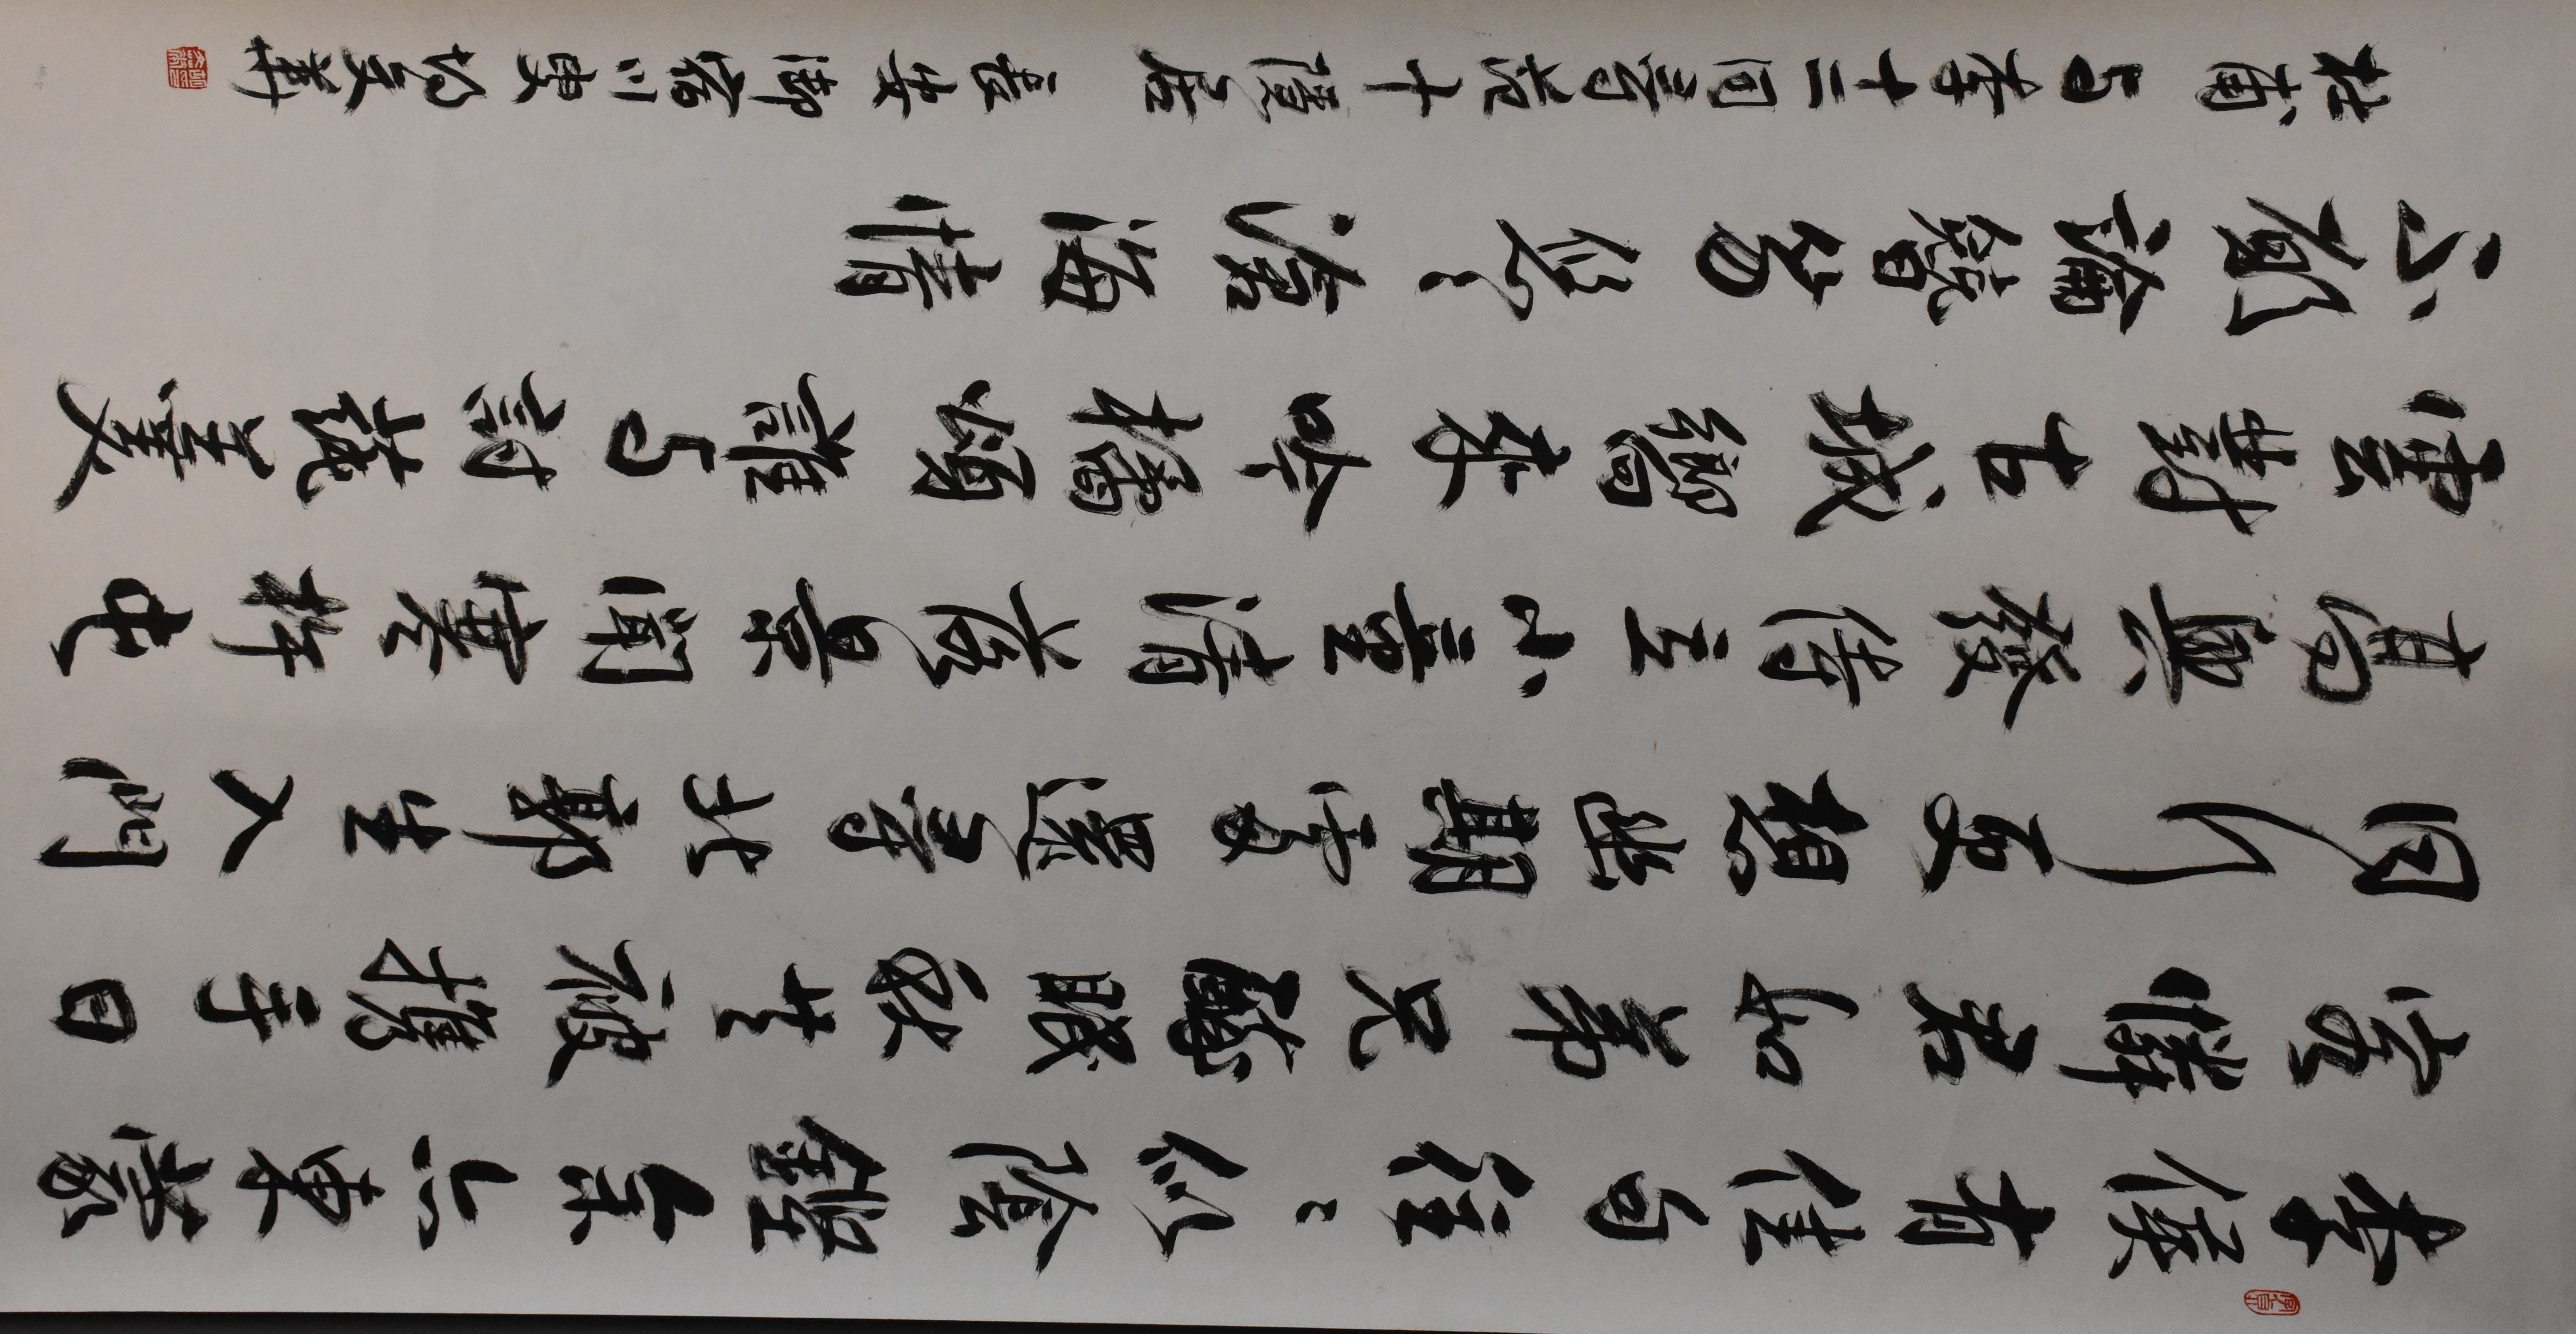 李侯有佳句往〻似陰鏗余亦東蒙
客憐君如弟兄醉眠秋共被攜手日
同行更想幽期處還尋北郭生入門
高興發侍立小童清落景聞寒杵屯
雲對古城嚮來吟橘頌誰与討蒓羹
不願論簪笏悠〻滄海情
杜甫与李十二同尋范十隱居